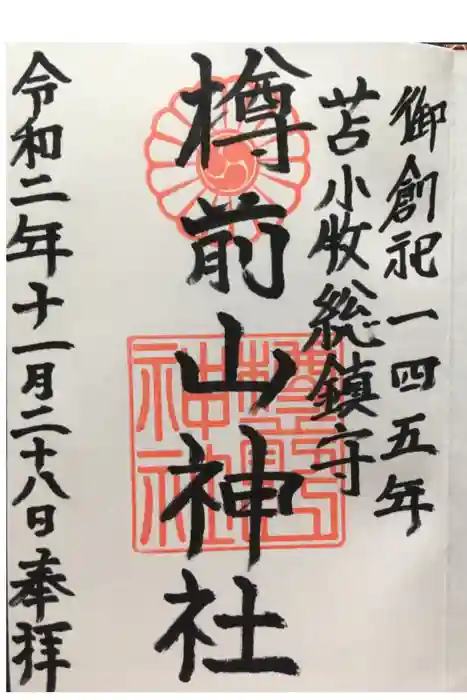 御創祀一四五年
苫小牧総鎮守
樽前山神社
令和二年十一月二十八日奉拝
樽前山神社